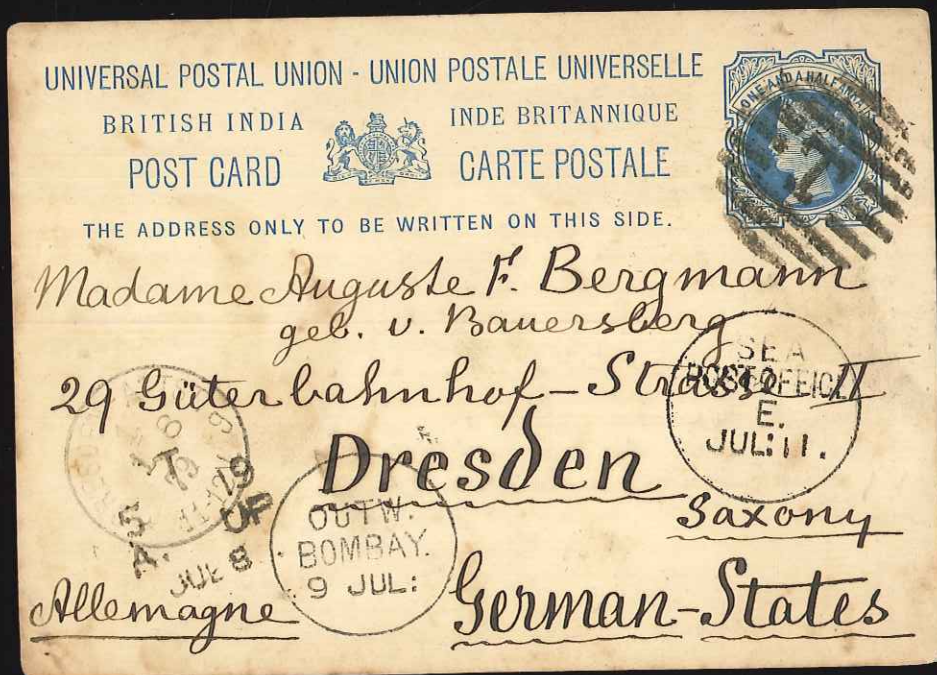 UNIVERSAL POSTAL UNION - UNION POSTALE UNIVERSELLE
BRITISH INDIA
INDE BRITANNIQUE
POST CARD
CARTE POSTALE
THE ADDRESS ONLY TO BE WRITTEN ON THIS SIDE.
ONE AND A HALF ANNA
Madame Auguste F. Bergmann
geb. v. Bauersberg
29 Güterbahnhof-Strasse II
Dresden
Saxony
German-States
Allemagne
SEA
POST OFFICE
E.
JUL: 11.
OUTW.
BOMBAY.
9 JUL:
JUL 8